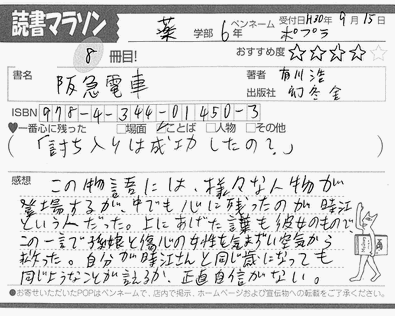 読書マラソン
薬 学部 6年 ペンネーム ポプラ 受付日 H30年 9月 15日
8 冊目!
おすすめ度 ☆☆☆☆☆
書名 阪急電車
著者 有川浩
出版社 幻冬舎
ISBN 978-4-344-01450-3
♥一番心に残った □場面 ☑ことば □人物 □その他
(「討ち入りは成功したの?」)
感想 この物語には、様々な人物が
登場するが、中でも心に残ったのが時江
という人だった。上にあげた言葉も彼女のもので
この一言で孫娘と傷心の女性を気まずい空気から
救った。自分が時江さんと同じ歳になっても
同じようなことが言えるか、正直自信がない。
●お寄せいただいたPOPはペンネームで、店内で掲示・ホームページおよび宣伝物への転載をご了承ください。